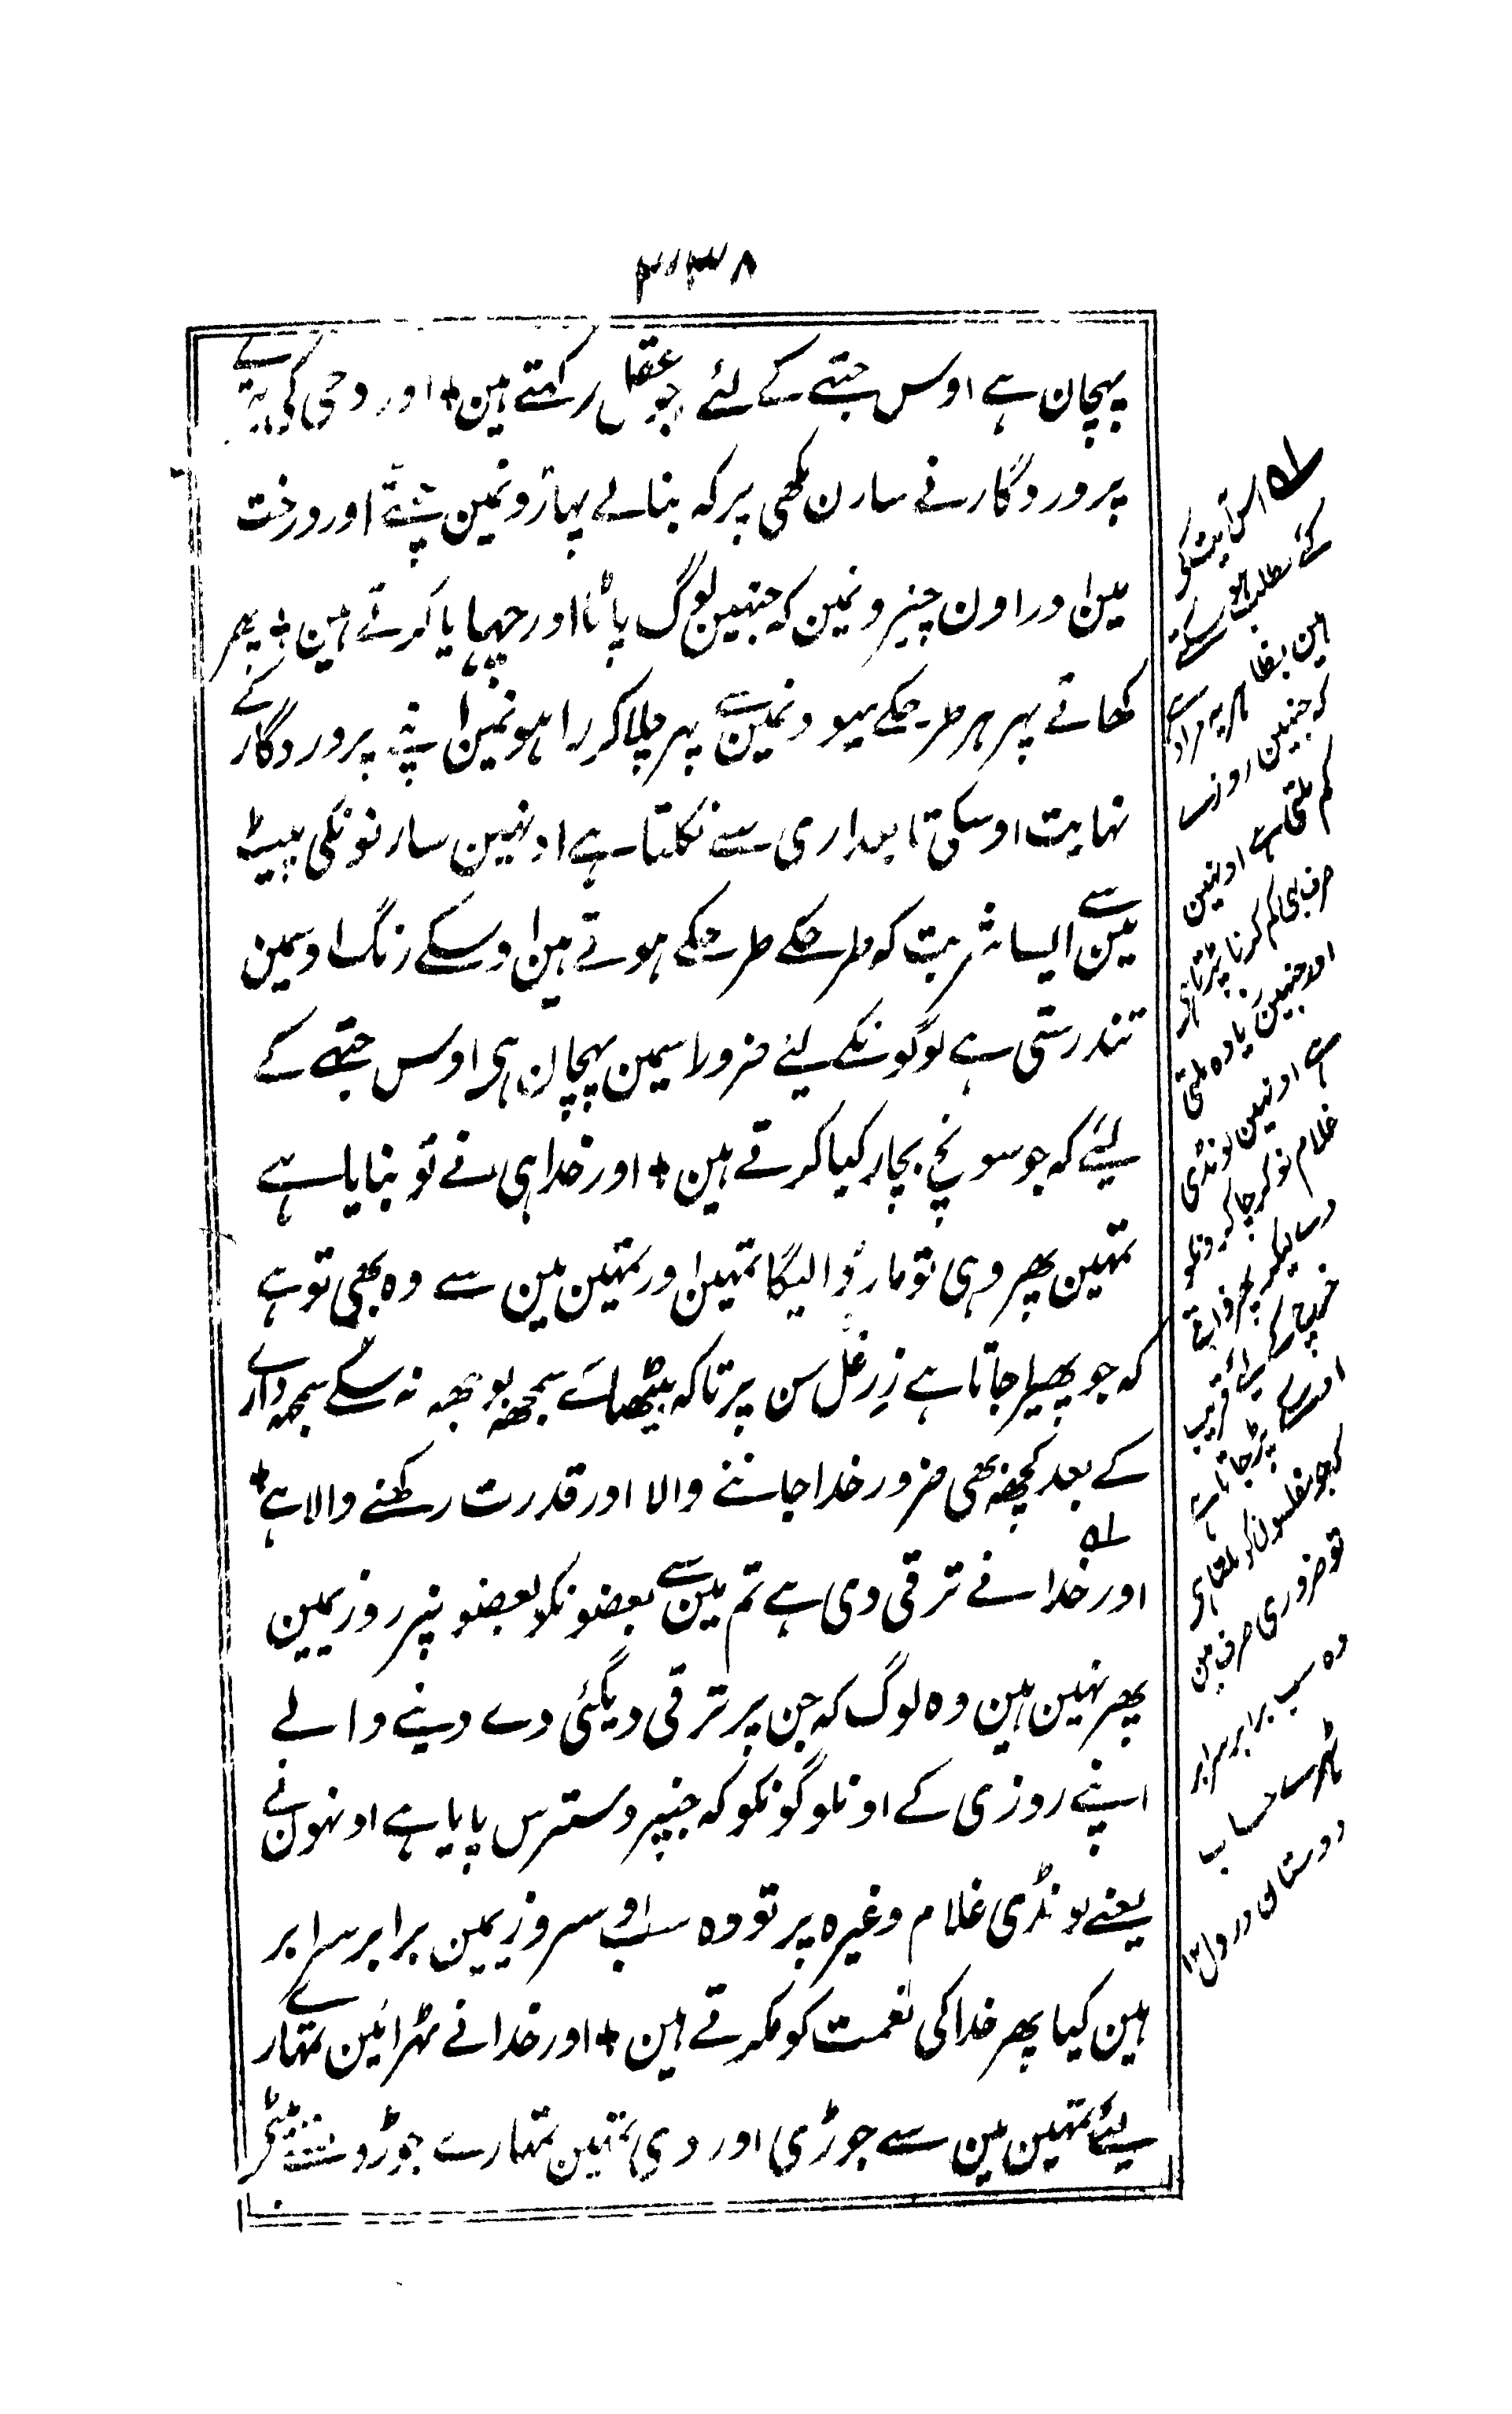 ۴۳۸
پہچان ہے اوس جتھے کے لئے جو عقل رکھتے ہین + اور وحی کی تیرے
پروردگار نے سارن مکھی پر کہ بنالے پہاڑونمین چھتے اور درخت
مین اور اون چیزونمین کہ جنھین لوگ پاٹا اور چھپایا کرتے ہین + پھر
کھاتے پھر ہر طرحکے میوونمین سے پھر چلا کر راہونمین اپنے پروردگار کے
نہایت اوسکی تابعداری سے نکلتا ہے اونہین سارنونکی پیٹ
مین سے ایسا شربت کہ طرحکے طرحکے ہوتے ہین اوسکے رنگ اوسمین
تندرستی ہے لوگونکے لئے ضرور اسمین پہچان ہی اوس جتھے کے
لیئے کہ جو سونچ بچار کیا کرتے ہین + اور خدا ہی نے تو بنایا ہے
تمھین پھر وہی تو مار ڈالیگا تمھین اور تمھین مین سے وہ بھی تو ہے
کہ جو پھیرا جاتا ہے زرغل سن پر تاکہ بیٹھا سے سمجھ بوجھ نہ سکے سمجھ داری
کے بعد کچھ بھی ضرور خدا جاننے والا اور قدرت رکھنے والا ہے +
اور خدا نے ترقی دی ہے تم مین سے بعضونکو بعضونپر روزیمین
پھر نہین ہین وہ لوگ کہ جن پر ترقی دیگئی دے دینے والے
اپنے روزی کے اونلوگونکو کہ جنپر دسترس پایا ہے اونہون نے
یعنے لونڈی غلام وغیرہ پر تو وہ سب اوس روزیمین برابر سرابر
ہین کیا پھر خدا کی نعمت کو مکرتے ہین + اور خدا نے ٹھرائین تمھارے
لیئے تمھین مین سے جوڑی اور دی تمھین تمھارے جوڑو سے بیٹے
لہ اس آیت کی
کئے مطلب ہو سکتے
ہین بظاہر یہ مراد ہے
کہ جنھین روزے
کم ملتی ہے اونہین
صرف بھی کم کرنا پڑتا ہے
اور جنھین زیادہ ملتی
ہے اونہین لونڈی
غلام نوکر چاکرونکو
دسا لیکر پھر
خرچ کے لئے قریب
اوسے پڑ جاتا ہے
کہ جو مفلسون کو ملتا ہی
تو ضروری صرف مین
وہ سب برابر سرابر
ٹھرے حساب
دوستان در دل ۱۲